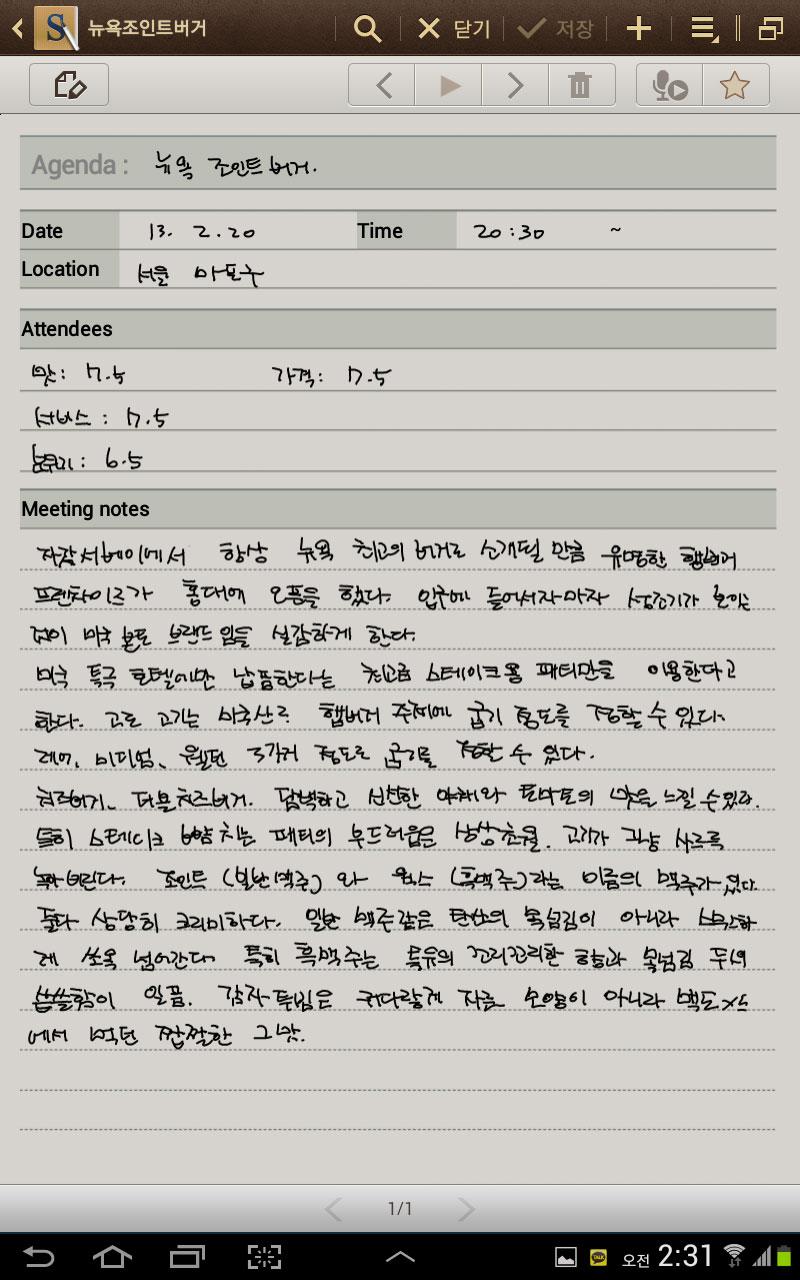 뉴욕조인트버거
닫기
저장
Agenda : 뉴욕 조인트 버거.
Date 13. 2.20 Time 20:30 ~
Location 서울 마포구
Attendees
맛: 7.5 가격: 7.5
서비스 : 7.5
분위기: 6.5
Meeting notes
자갈서베이에서 항상 뉴욕 최고의 버거로 소개될 만큼 유명한 햄버거
프랜차이즈가 홍대에 오픈을 했다. 입구에 들어서자마자 성조기가
것이 미국 본토 브랜드임을 실감하게 한다.
미국 특급 호텔에만 납품한다는 최고급 스테이크용 패티만을 이용한다고
한다. 고로 고기는 미국산. 햄버거 주제에 굽기 정도를 정할 수 있다.
레어, 미디엄, 웰던 3가지 정도로 굽기를 정할 수 있다.
치즈버거, 더블치즈버거. 담백하고 신선한 야채와 토마토의 맛을 느낄 수 있다.
특히 스테이크 뺨치는 패티의 부드러움은 상상초월. 고기가 그냥 사르륵
녹아버린다. 조인트 (일반맥주) 와 (흑맥주)라는 이름의 맥주가 있다.
둘다 상당히 크리미하다. 일반 맥주같은 탄산의 목넘김이 아니라 스무스하
게 쏘옥 넘어간다. 특히 흑맥주는 특유의 꼬리꼬리한 향과 목넘김 후의
씁쓸함이 일품. 감자튀김은 커다랗게 자른 모양이 아니라 맥도xs
에서 먹던 짭짤한 그맛.
1/1
오전 2:31